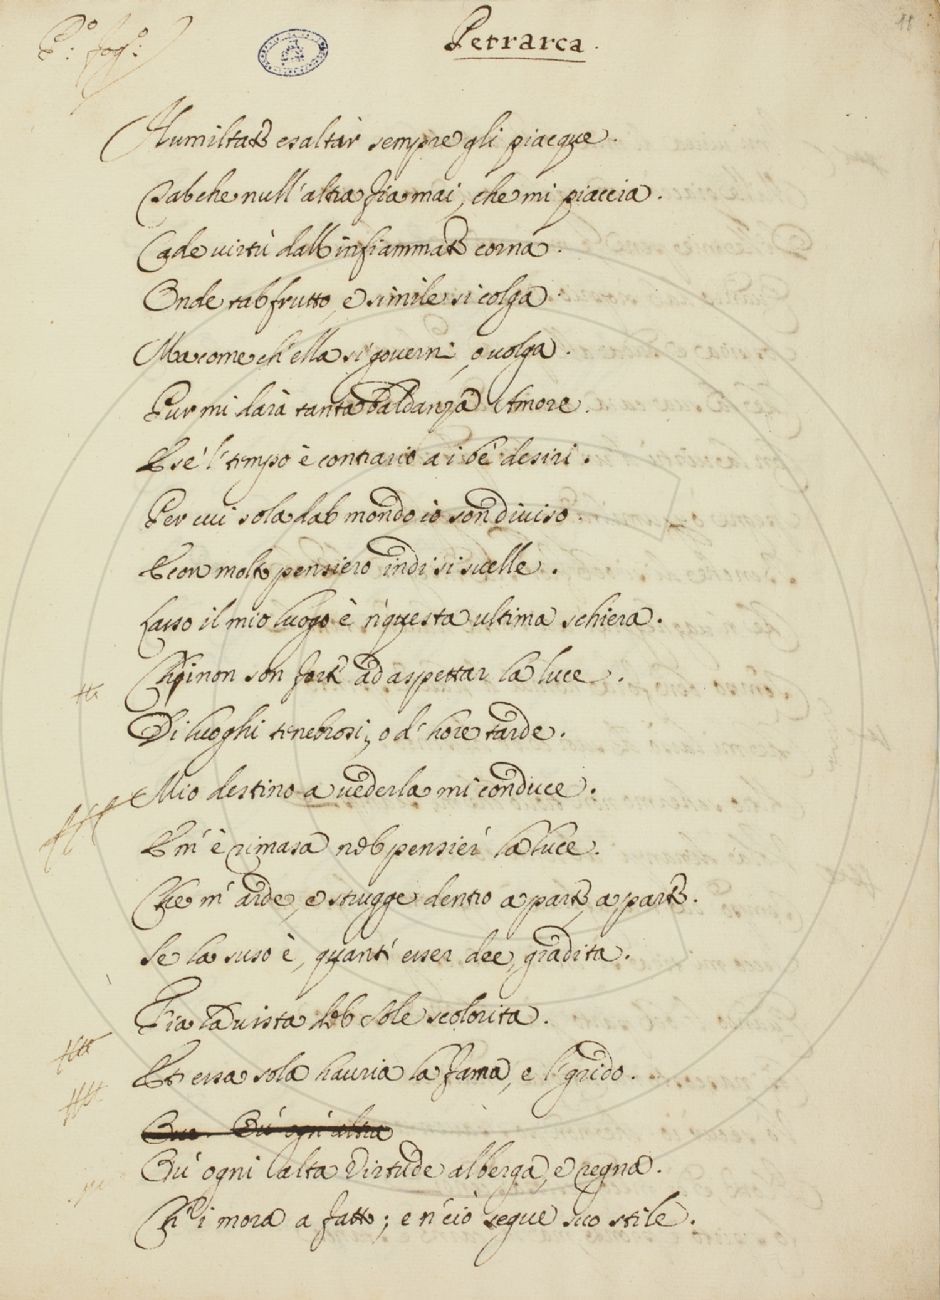 P.º fog.º:
Petrarca.
11
Humiltate esaltàr sempre gli piacque.
Tal che null'altra fia mai, che mi piaccia.
Cade virtù dall'infiammate corna.
Onde tal frutto, e simile si colga
Ma come ch'ella si governi, o volga.
Pur mi darà tanta baldanza Amore.
E se'l tempo è contrario a i be' desiri.
Per cui sola dal mondo io son diviso.
E con molto pensiero indi si svelle.
Lasso il mio luogo è 'n questa ultima schiera.
Ch'i non son forte ad aspettar la luce.
Di luoghi tenebrosi, o d'hore tarde.
Mio destino a vederla mi conduce.
E m'è rimasa nel pensier la luce.
Che m'arde, e strugge dentro a parte, a parte.
Se la suso è, quant'esser dee, gradita.
Fia la vista del Sole scolorita.
Et essa sola hauria la fama, e'l grido.
Ou' ogn'altra
Ou' ogni alta Virtude alberga, e regna.
Ch'i mora a fatto; e n'ciò segue suo stile.